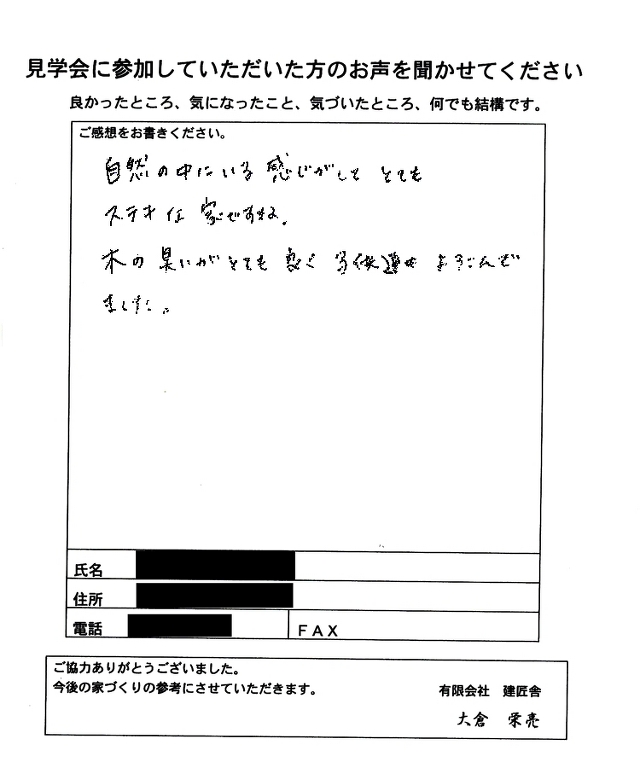 見学会に参加していただいた方のお声を聞かせてください
良かったところ、気になったこと、気づいたところ、何でも結構です。
ご感想をお書きください。
自然の中にいる感じがして とても
ステキな家ですね。
木の臭いがとても良く子供達もよろこんで
ました。
氏名
住所
電話
FAX
ご協力ありがとうございました。
今後の家づくりの参考にさせていただきます。
有限会社 建匠舎
大倉 栄亮